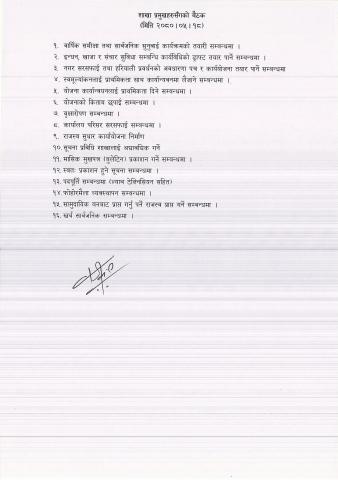 शाखा प्रमुखहरुसँगको बैठक
(मिति २०८०।०५।१८)
१. वार्षिक समीक्षा तथा सार्वजनिक सुनुवाई कार्यक्रमको तयारी सम्बन्धमा ।
२. इन्धन, खाजा र संचार सुविधा सम्बन्धि कार्यविधिको ड्राफ्ट तयार पार्ने सम्बन्धमा ।
३. नगर सरसफाई तथा हरियाली प्रवर्धनको अवधारणा पत्र र कार्ययोजना तयार पार्ने सम्बन्धमा
४. स्वमूल्यांकनलाई प्राथमिकता साथ कार्यान्वयनमा लैजाने सम्बन्धमा ।
५. योजना कार्यान्वयनलाई प्राथमिकता दिने सम्बन्धमा ।
६. योजनाको किताब छपाई सम्बन्धमा ।
७. वृक्षारोपण सम्बन्धमा ।
८. कार्यालय परिसर सरसफाई सम्बन्धमा ।
९. राजस्व सुधार कार्ययोजना निर्माण
१०. सूचना प्रविधि शाखालाई अद्यावधिक गर्ने
११. मासिक मुखपत्र (बुलेटिन) प्रकाशन गर्ने सम्बन्धमा ।
१२. स्वतः प्रकाशन हुने सूचना सम्बन्धमा ।
१३. पदपूर्ति सम्बन्धमा (ल्याब टेक्निसियन सहित)
१४. फोहोरमैला व्यवस्थापन सम्बन्धमा ।
१५. सामुदायिक वनबाट प्राप्त गर्नु पर्ने राजस्व प्राप्त गर्ने सम्बन्धमा ।
१६. खर्च सार्वजनिक सम्बन्धमा ।